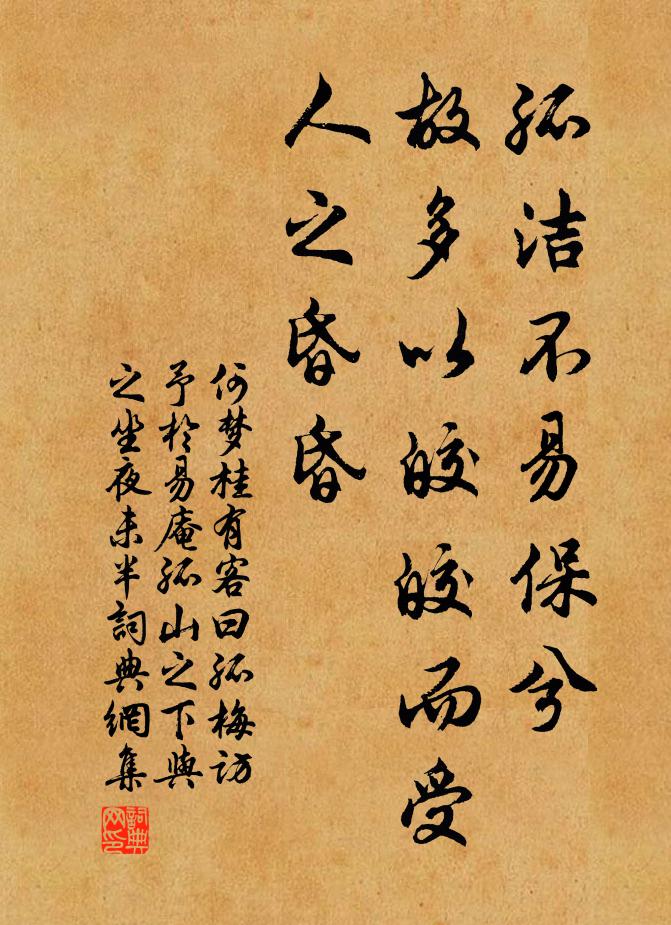 孤洁不易保兮
故多以皎皎而受
人之昏昏
何梦桂有客曰孤梅访
予於易庵孤山之下與
之坐夜未半詞典網集
詞典网印